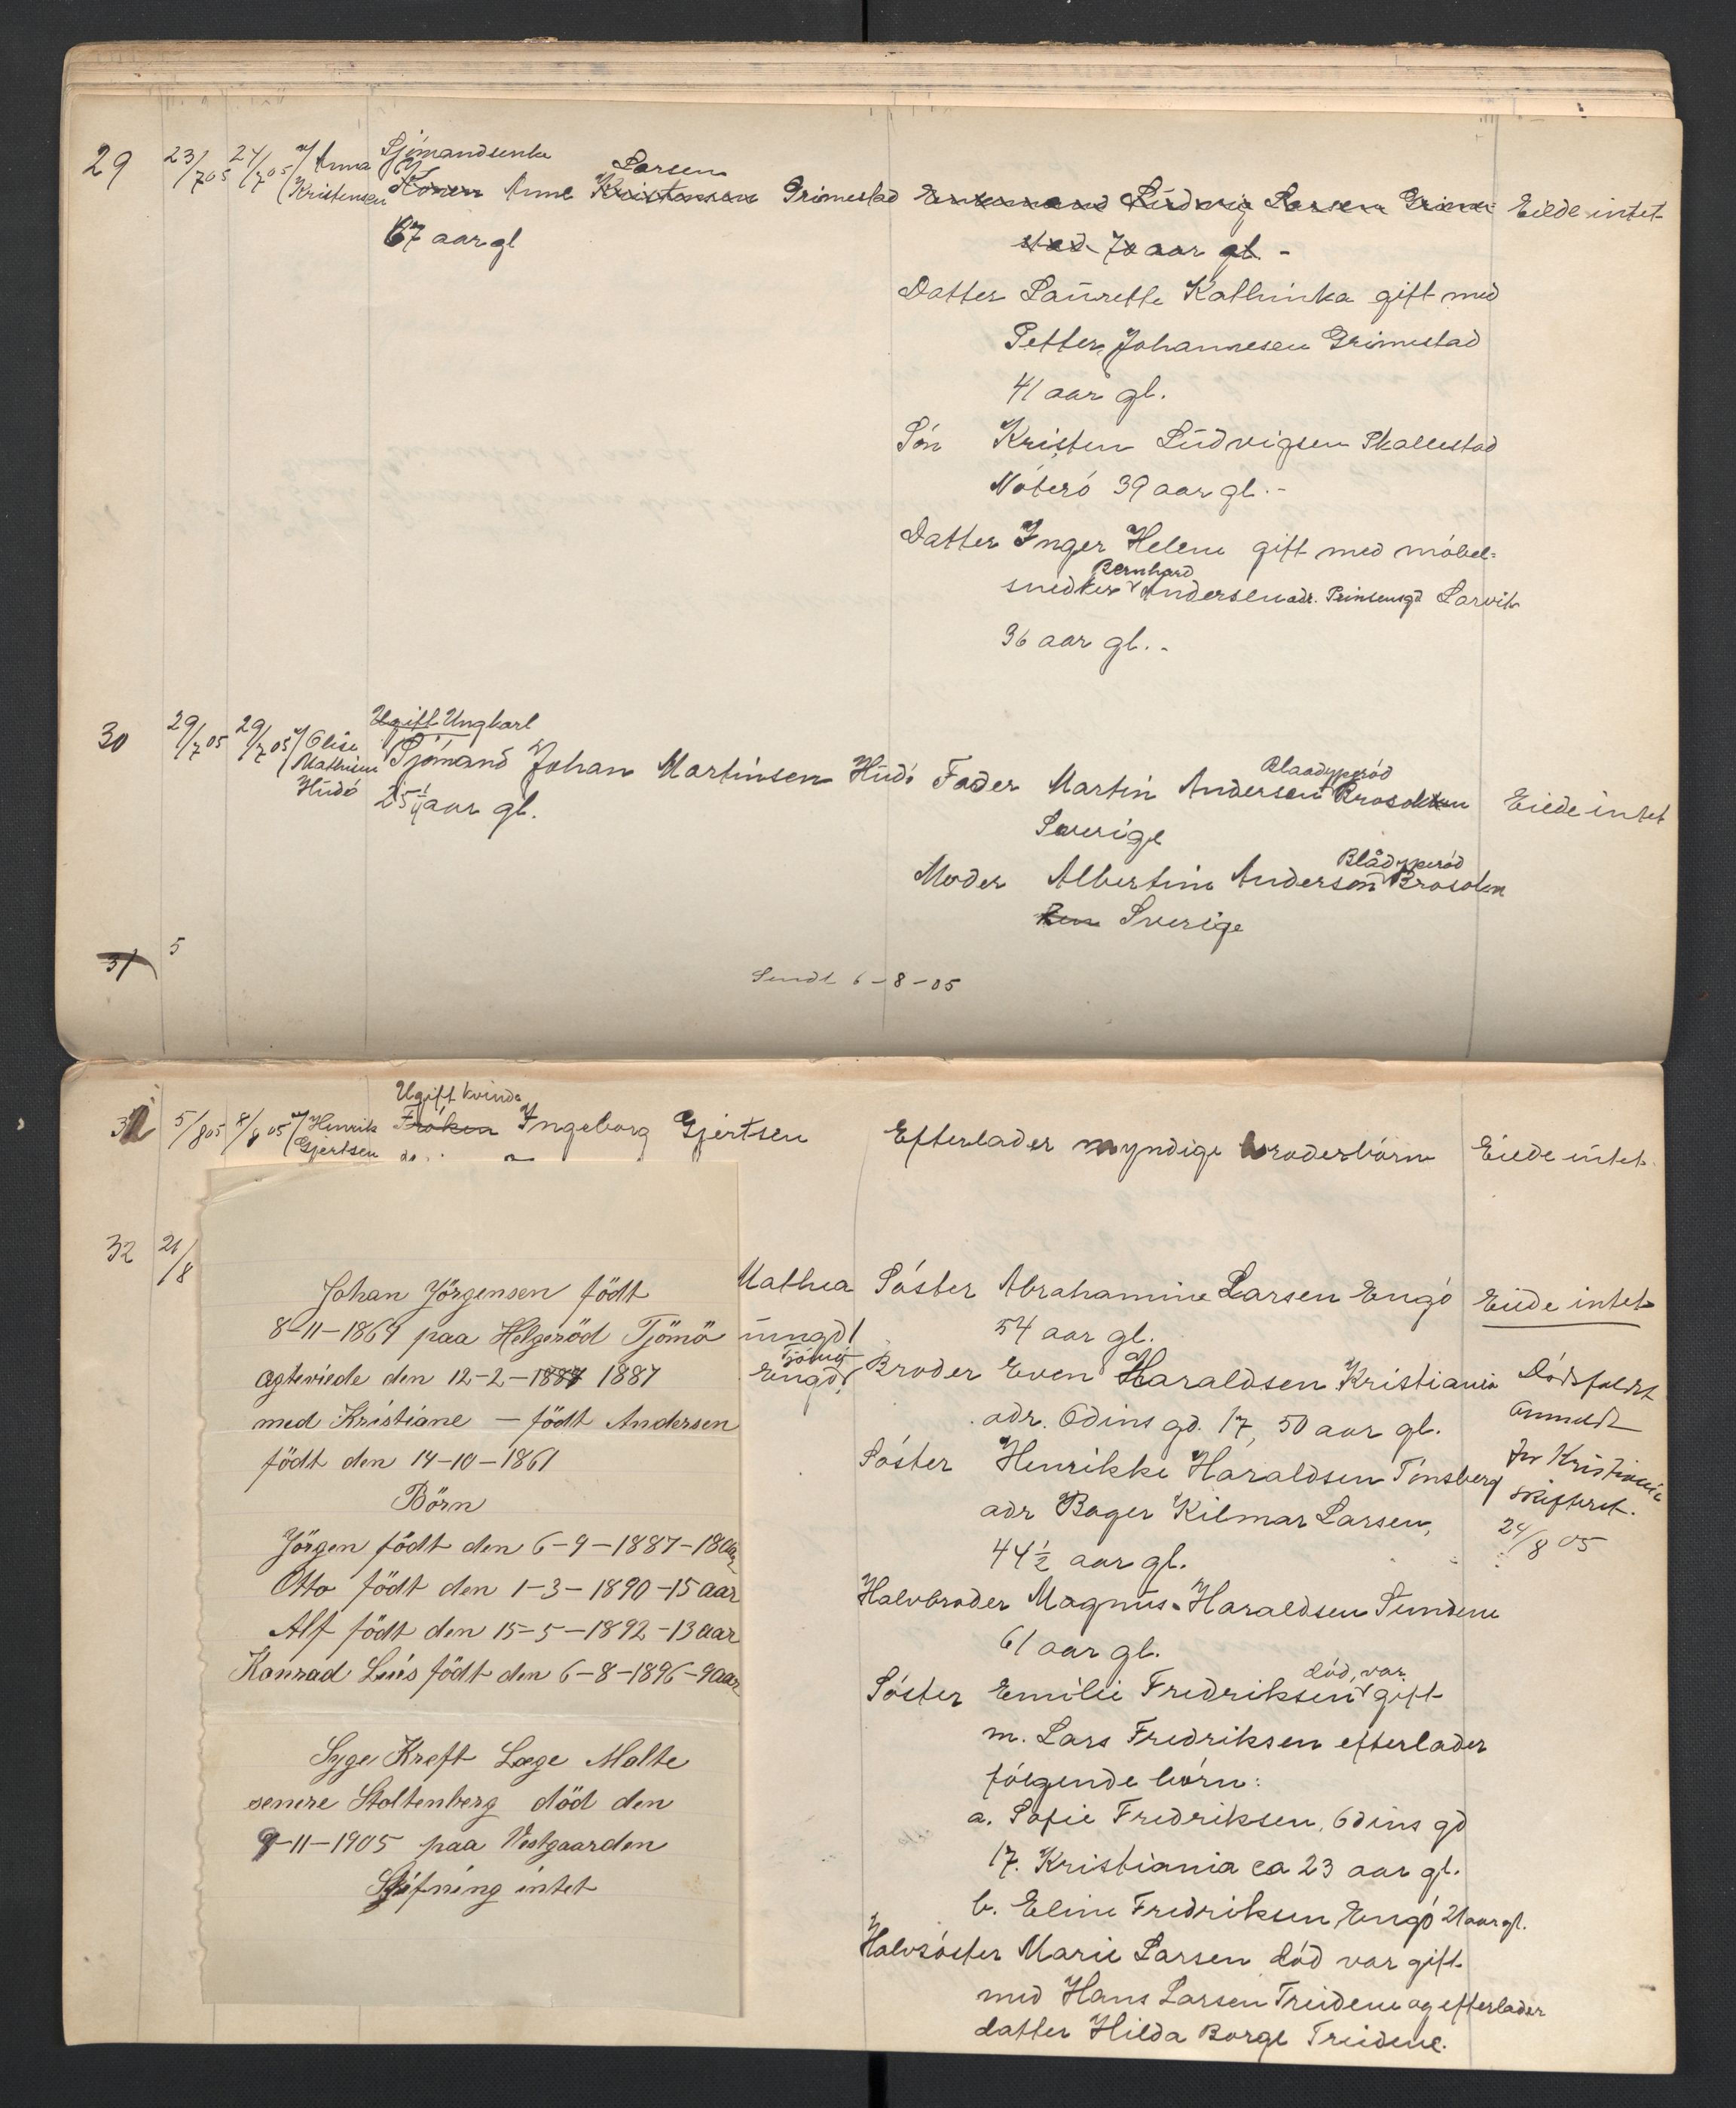 29 23/7 05 24/7 05 v/ Anna Kristensen
Sjómandsenke
Konen Anne Kristensen Larsen Grimestad
67 aar gl
Enkemand Ludvig Larsen Grime-
stad 70 aar gl. -
Eiede intet
Datter Laurette Kathinka gift med
Petter Johannesen Grimestad
41 aar gl.
Són Kristen Ludvigsen Skallestad
Nóteró 39 aar gl. -
Datter Inger Helene gift med móbel=
snedker Bernhard Andersen adr. Prinsensgd Larvik
36 aar gl. -
30 29/7 05 29/7 05 v/ Olise Mathisen Húdó
Ugift Ungkarl
Sjómand Johan Martinsen Húdó
25 1/4 aar gl.
Fader Martin Andersen Blaadyperód Brosolen
Sverige
Eiede intet
Moder Albertine Anderson Blådyperód Brosolen
Sverige
31 5
Sendt 6-8-05
31 5/8 05 8/8 05 v/ Henrik Gjertsen
Ugift kvinde
Fróken Ingeborg Gjertsen
Efterlader myndige broderbórn
Eiede intet.
32 21/8
Mathea
ungd!
Tjómó
Engó
Johan Jörgensen födt
8-11-1864 paa Helgeröd Tjömö
Ægteviede den 12-2-1887 1887
med Kristiane — födt Andersen
födt den 14-10-1861
Börn
Jörgen födt den 6-9-1887-18 aar
Otto födt den 1-3-1890-15 aar
Alf födt den 15-5-1892-13 aar
Konrad Luis födt den 6-8-1896-9 aar
Syge Kreft Læge Malte
senere Stoltenberg död den
9-11-1905 paa Vestgaarden
Skifning intet
Sóster Abrahamine Larsen Engó
54 aar gl.
Eiede intet
Broder Even Haraldsen Kristiania
adr. Odins gd. 17, 50 aar gl.
Sóster Henrikke Haraldsen Tónsberg
adr Bager Kilmar Larsen,
44 1/2 aar gl.
Dódsfaldet
anmeldt
for Kristiania
skifteret.
24/8 05
Halvbroder Magnus Haraldsen Sundene
61 aar gl.
Sóster Emilie Fredriksen död, var gift
m. Lars Fredriksen efterlader
fólgende bórn:
a. Sofie Fredriksen, Odins gd
17. Kristiania ca 23 aar gl.
b. Eline Fredriksen Engó 21 aar gl.
Halvsóster Marie Larsen dód var gift
med Hans Larsen Treidene og efterlader
datter Hilda Borge Treidene.